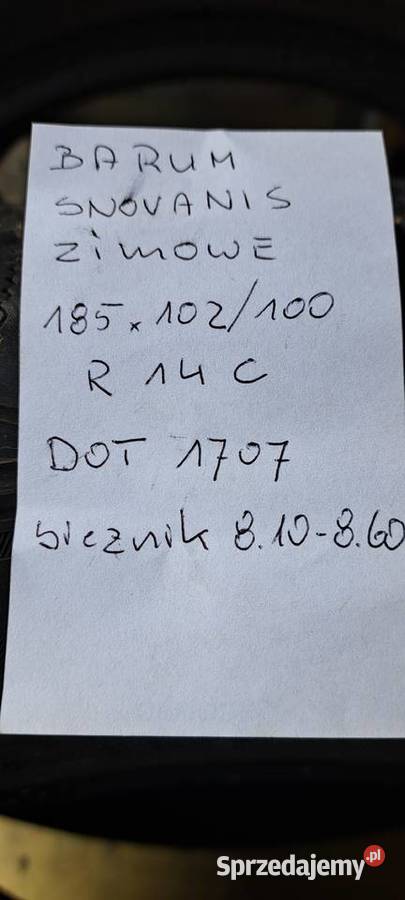 BARUM
SNOVANIS
ZIMOWE
185 x 102/100
R 14 C
DOT 1707
bieznik 8.10-8.60
Sprzedajemy.pl